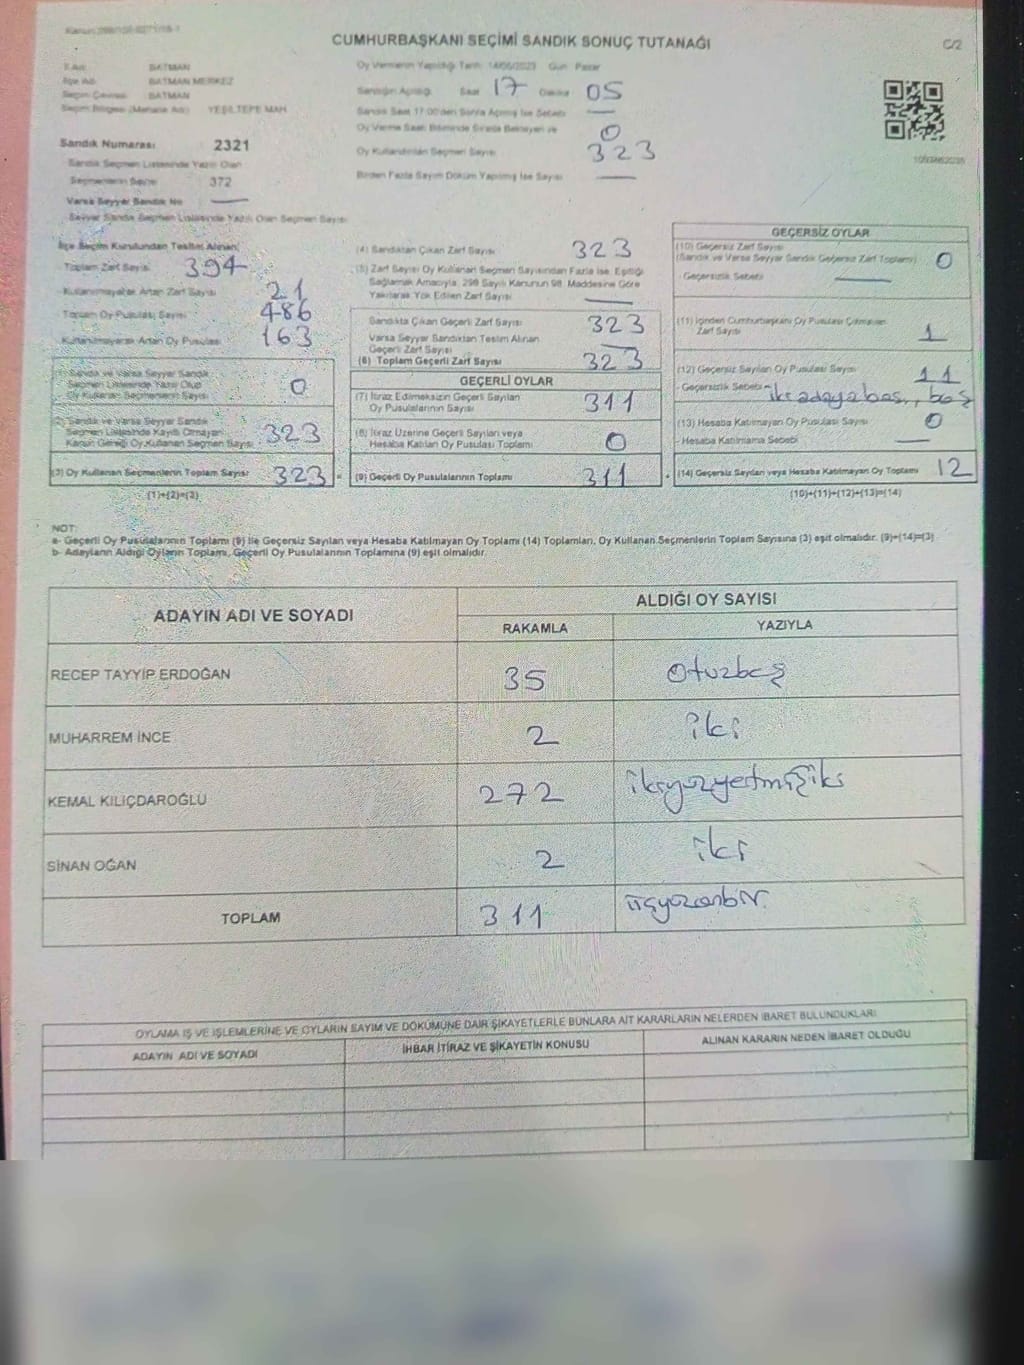 CUMHURBAŞKANI SEÇİMİ SANDIK SONUÇ TUTANAĞI
C/2
İl Adı: BATMAN
İlçe Adı: BATMAN MERKEZ
Seçim Çevresi: BATMAN
Seçim Bölgesi (Mahalle Adı) YEŞİLTEPE MAH
Sandık Numarası 2321
Sandık Seçmen Listesinde Yazılı Olan
Seçmenlerin Sayısı 372
Varsa Seyyar Sandık No —
Seyyar Sandık Seçmen Listesinde Yazılı Olan Seçmen Sayısı
Oy Vermenin Yapıldığı Tarih 14/05/2023 Gün Pazar
Sandığın Açıldığı Saat 17 Dakika 05
Sandık Saat 17:00'den Sonra Açılmış İse Sebebi —
Oy Verme Saati Bitiminde Sırada Bekleyen ve 0
Oy Kullandırılan Seçmen Sayısı 323
Birden Fazla Sayım Döküm Yapılmış İse Sayısı —
İlçe Seçim Kurulundan Teslim Alınan;
Toplam Zarf Sayısı 394
Kullanılmayarak Artan Zarf Sayısı 21
Toplam Oy Pusulası Sayısı 486
Kullanılmayarak Artan Oy Pusulası 163
(1) Sandık ve Varsa Seyyar Sandık
Seçmen Listesinde Yazılı Olup
Oy Kullanan Seçmenlerin Sayısı 0
(2) Sandık ve Varsa Seyyar Sandık
Seçmen Listesinde Kayıtlı Olmayan
Kanun Gereği Oy Kullanan Seçmen Sayısı 323
(3) Oy Kullanan Seçmenlerin Toplam Sayısı 323 =
(1)+(2)=(3)
(4) Sandıktan Çıkan Zarf Sayısı 323
(5) Zarf Sayısı Oy Kullanan Seçmen Sayısından Fazla İse, Eşitliği
Sağlamak Amacıyla, 298 Sayılı Kanunun 98. Maddesine Göre
Yakılarak Yok Edilen Zarf Sayısı —
Sandıkta Çıkan Geçerli Zarf Sayısı 323
Varsa Seyyar Sandıktan Teslim Alınan
Geçerli Zarf Sayısı —
(6) Toplam Geçerli Zarf Sayısı 323
GEÇERLİ OYLAR
(7) İtiraz Edilmeksizin Geçerli Sayılan
Oy Pusulalarının Sayısı 311
(8) İtiraz Üzerine Geçerli Sayılan veya
Hesaba Katılan Oy Pusulası Toplamı 0
(9) Geçerli Oy Pusulalarının Toplamı 311 +
GEÇERSİZ OYLAR
(10) Geçersiz Zarf Sayısı
(Sandık ve Varsa Seyyar Sandık Geçersiz Zarf Toplamı) 0
- Geçersizlik Sebebi —
(11) İçinden Cumhurbaşkanı Oy Pusulası Çıkmayan
Zarf Sayısı 1
(12) Geçersiz Sayılan Oy Pusulası Sayısı 11
- Geçersizlik Sebebi
(13) Hesaba Katılmayan Oy Pusulası Sayısı 0
- Hesaba Katılmama Sebebi —
(14) Geçersiz Sayılan veya Hesaba Katılmayan Oy Toplamı 12
(10)+(11)+(12)+(13)=(14)
NOT:
a- Geçerli Oy Pusulalarının Toplamı (9) İle Geçersiz Sayılan veya Hesaba Katılmayan Oy Toplamı (14) Toplamları, Oy Kullanan Seçmenlerin Toplam Sayısına (3) eşit olmalıdır. (9)+(14)=(3)
b- Adayların Aldığı Oyların Toplamı, Geçerli Oy Pusulalarının Toplamına (9) eşit olmalıdır.
ADAYIN ADI VE SOYADI
ALDIĞI OY SAYISI
RAKAMLA YAZIYLA
RECEP TAYYİP ERDOĞAN 35 Otuzbeş
MUHARREM İNCE 2 iki
KEMAL KILIÇDAROĞLU 272 ikiyüzyetmişiki
SİNAN OĞAN 2 iki
TOPLAM 311 üçyüzonbir
OYLAMA İŞ VE İŞLEMLERİNE VE OYLARIN SAYIM VE DÖKÜMÜNE DAİR ŞİKAYETLERLE BUNLARA AİT KARARLARIN NELERDEN İBARET BULUNDUKLARI
ADAYIN ADI VE SOYADI İHBAR İTİRAZ VE ŞİKAYETİN KONUSU ALINAN KARARIN NEDEN İBARET OLDUĞU